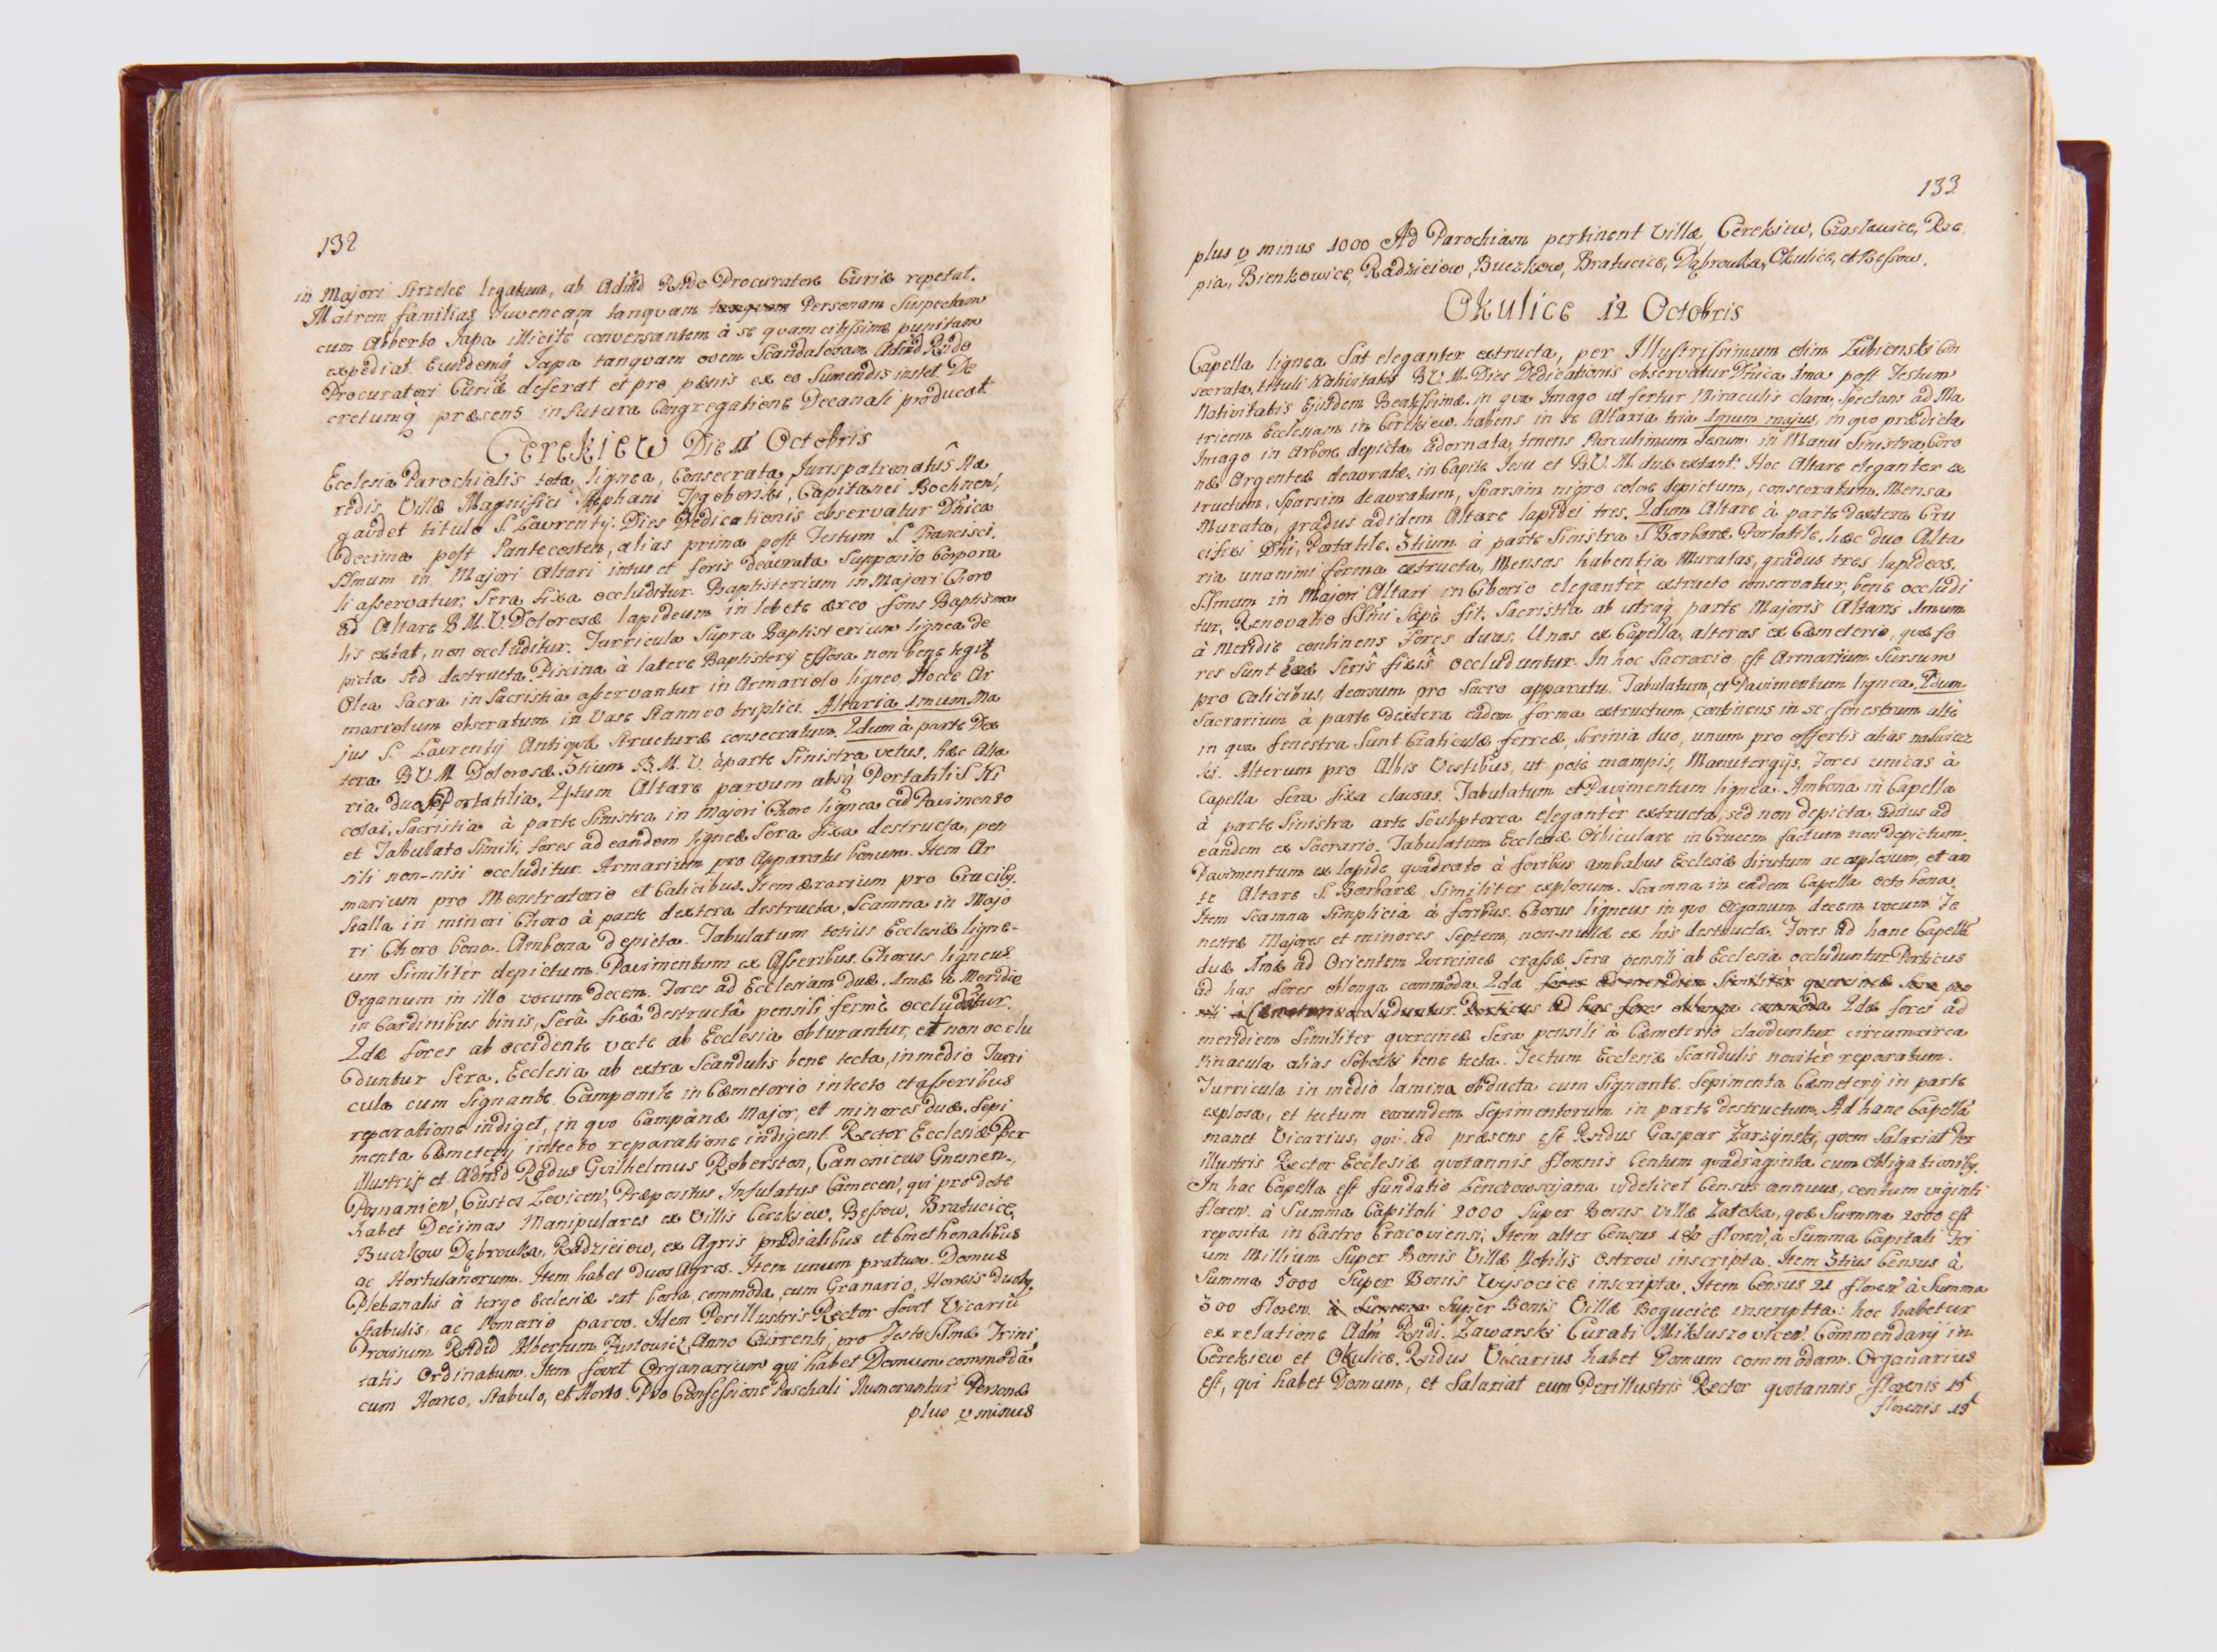 132
in Majori Strzelce legatum, ab Admd Rndo Procuratore Curiæ repetat.
Matrem familias Juvencam tanquam tanquam Personam Suspectam
cum Alberto Japa illicitè conversantem à se quam citissime punitam
expediat. Eundemq Japa tanquam ovem Scandalosam Admd Rndo
Procuratori Curiæ deferat et pro pænis ex eo Sumendis instet. De
cretumq præsens in futura Congregatione Decanali producat.
Cerekiew Die 11 Octobris
Ecclesia Parochialis tota lignea, Consecrata, Jurispatronatûs Hæ
redis Villæ Magnifici Stephani Jegoberski, Capitanei Bochnen,
gaudet titulo S. Laurentij. Dies Dedicationis observatur Dnica
decima post Pantecosten, alias prima post Festum S. Francisci.
SSmum in Majori Altari intus et foris deaurata Supposito Corpora
li asservatur, Sera fixa occluditur. Baptisterium in Majori Choro
ad Altare B.M.V. Dolorosæ lapideum in lebete æreo fons Baptisma
lis extat, non occluditur. Turricula Supra Baptisterium lignea de
picta sed destructa. Piscina à latere Baptisterij effosa non bene tegit
Olea Sacra in Sacristia asservantur in Armariolo ligneo, Hocce Ar
mariolum obseratum in Vase stanneo triplici. Altaria 1mum Ma
jus S. Laurentij Antiquæ structuræ consecratum. 2dum à parte Dex
tera B.V.M. Dolorosæ. 3tium B.M.V. à parte Sinistra vetus, hæc Alta
ria duo Portatilia. 4tum Altare parvum absq Portatili S. Ni
colai. Sacristia à parte Sinistra in Majori Choro lignea cū Pavimento
et Tabulato Simili, fores ad eandem ligneæ Sera fixa destructa, pen
sili non-nisi occluditur. Armarium pro Apparatu bonum. Item Ar
marium pro Monstratorio et Calicibus. Item ærarium pro Crucib9.
Stalla in minori Choro à parte dextera destructa, Scamna in Majo
ri Choro bona. Ambona depicta. Tabulatum totius Ecclesiæ ligne-
um Similitèr depictum. Pavimentum ex Asseribus. Chorus ligneus
Organum in illo vocum decem. Fores ad Ecclesiam duæ. 1mæ à Meridie
in Cardinibus binis, Serâ fixâ destructâ pensili fermè occluditur.
2dæ fores ab occidente vecte ab Ecclesia obturantur, et non occlu
duntur Sera. Ecclesia ab extra Scandulis bene tecta, in medio Turri
cula cum Signante. Campanile in Cæmetorio in tecto et asseribus
reparatione indiget, in quo Campanæ Major, et minores duæ. Sepi
menta Cæmeterij in tecto reparatione indigent. Rector Ecclesiæ Per
illustris et Admd Rndus Gvilhelmus Roberston, Canonicus Gnesnen.,
Posnanien, Custos Lovicen, Præpositus Infulatus Camecen, qui pro dote
habet Decimas Manipulares ex Villis Cerekiew, Bessow, Bratucice,
Buczkow Dąbrowka, Radzieiow, ex Agris prædialibus et Cmethonalibus
ac Hortulanorum. Item habet duos Agros. Item unum pratum. Domus
Plebanalis à tergo Ecclesiæ sat bona, commoda, cum Granario, Horreis duob9,
Stabulis, ac Pomario parvo. Idem Perillustris Rector fovet Vicariū
Provisum Rndd Albertum Pustowic, Anno Currenti, pro Festo SSmæ Trini
tatis Ordinatum. Item fovet Organarium qui habet Domum commodā
cum Horreo, Stabulo, et Horto. Pro Confessione Paschali Numerantur Personæ
plus v minus
133
plus v minus 1000 Ad Parochiam pertinent Villæ, Cerekiew, Czaslawice, Rze
pia, Bienkowice, Radzieiow, Buczkow, Bratucice, Dąbrowka, Okulice, et Bessow.
Okulice 12 Octobris
Capella lignea Sat eleganter extructa, per Illustrissimum olim Łubienski Con
secrata, tituli Nativitatis B.V.M. Dies Dedicationis observatur Dnica 1ma post Festum
Nativitatis Ejusdem Beatissimæ. in qua Imago ut fertur Miraculis clara, Spectans ad Ma
tricem Ecclesiam in Cerekiew. habens in se Altaria tria 1mum majus, in quo prædicta
Imago in Arbore depicta, adornata, tenens Parvulimum Jesum in Manu Sinistra, Coro
næ Argenteæ deauratæ. in Capite Jesu et B.V.M. duæ extant. Hoc Altare eleganter ex
tructum, Sparsim deauratum, Sparsim nigro colore depictum, consecratum. Mensa
Murata, gradus ad idem Altare lapidei tres. 2dum Altare à parte dextera Cru
cifixi Dni, Portatile. 3tium à parte Sinistra S. Barbaræ Portatile. hæc duo Alta
ria unanimi forma extructa, Mensas habentia Muratas, gradus tres lapideos.
SSmum in Majori Altari in Ciborio eleganter extructo conservatur, bene occludi
tur, Renovatio SSmi sæpè fit. Sacristia ab utraq parte Majoris Altaris 1mum
à Meridie continens Fores duas. Unas ex Capella, alteras ex Cæmeterio, quæ fo
res Sunt Seris fixis occluduntur. In hoc Sacrario est Armarium Sursum
pro calicibus, deorsum pro Sacro apparatu. Tabulatum, et Pavimentum lignea. 2dum
Sacrarium à parte dextera eadem forma extructum, continens in se fenestrum altè
in qua fenestra Sunt Craticulæ ferreæ, Scrinia duo, unum pro offertis alias na Swiecz
ki. Alterum pro Albis Vestibus, ut pote mampis, Manutergijs. Fores unicas à
Capella Sera fixa clausas. Tabulatum et Pavimentum lignea. Ambona in Capella
à parte Sinistra arte Sculptorea eleganter extructa, sed non depicta, aditus ad
eandem ex Sacrario. Tabulatum Ecclesiæ Orbiculare in Crucem factum non depictum.
Pavimentum ex lapide quadrato à foribus ambabus Ecclesiæ dirutum ac explosum, et an
te Altare S. Barbaræ Similiter explosum. Scamna in eadem Capella octo bona.
Item Scamna Simplicia à foribus. Chorus ligneus in quo Organum decem vocum. Fe
nestræ Majores et minores Septem, non-nullæ ex his destructæ. Fores ad hanc Capellā
duæ 1mæ ad Orientem Quercineæ crassæ Sera pensili ab Ecclesia occluduntur. Porticus
ad has fores oblonga commoda. 2dæ fores ad meridiem Similitèr quercineæ Sera pen
sili à Cæmeterio claduduntur. Porticus ad has fores oblonga commoda 2dæ fores ad
meridiem Similiter quercineæ Sera pensili à Cæmeterio clauduntur circumcirca
Pinacula alias Sobotki bene tecta. Tectum Ecclesiæ Scandulis novitèr reparatum.
Turricula in medio lamina obducta cum Signante. Sepimenta Cæmeterij in parte
explosa, et tectum eorundem Sepimentorum in parte destructum. Ad hanc Capellā
manet Vicarius, qui ad præsens est Rndus Gaspar Zarzÿnski, quem Salariat Per
illustris Rector Ecclesiæ quotannis florenis Centum quadraginta cum Obligationib9.
In hac Capella est fundatio Lenctowsciana videlicet Census annuus, centum viginti
floren. à Summa Capitali 2000 Super Bonis Villæ Zatoka, quæ Summa 2000 est
reposita in Castro Cracoviensi; Item alter Census 180 floren, à Summa Capitali Tri
um Millium Super Bonis Villæ Nobilis Ostrow inscripta. Item 3tius Census à
Summa 5000 Super Bonis Wysocice inscripta. Item Census 21 floren à Summa
300 floren. à Summa Super Bonis Villæ Bogucice inscriptta: hoc habetur
ex relatione Adm Rndi. Zawarski Curati Mikluszovicen. Commendarij in
Cerekiew et Okulice. Rndus Vicarius habet Domum commodam. Organarius
est, qui habet Domum, et Salariat eum Perillustris Rector quotannis florenis 15
florenis 15